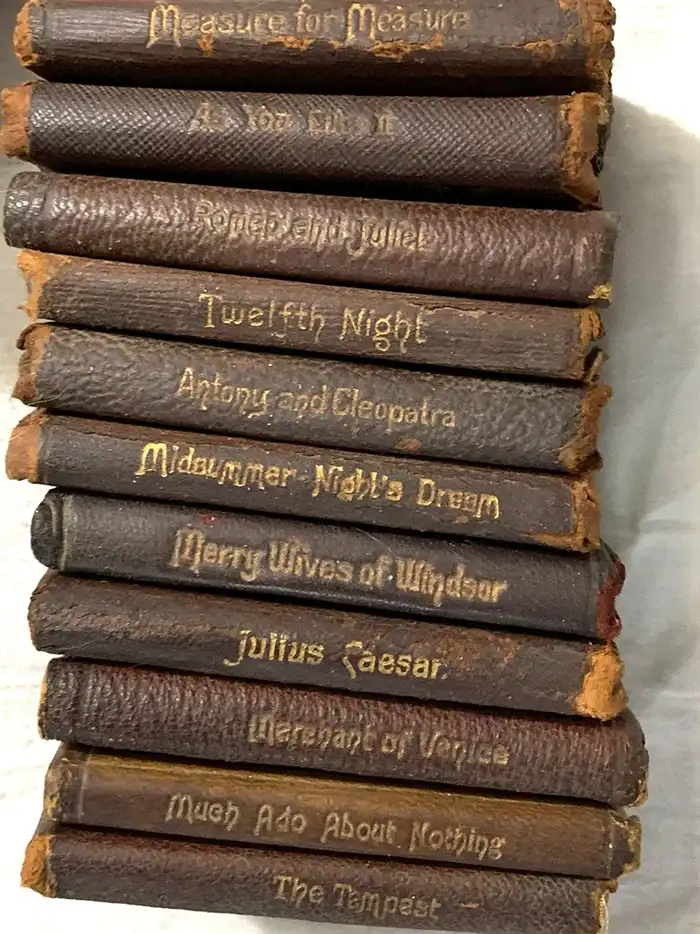 Measure for Measure
As You Like It
Romeo and Juliet
Twelfth Night
Antony and Cleopatra
Midsummer Night's Dream
Merry Wives of Windsor
Julius Caesar.
Merchant of Venice
Much Ado About Nothing
The Tempest